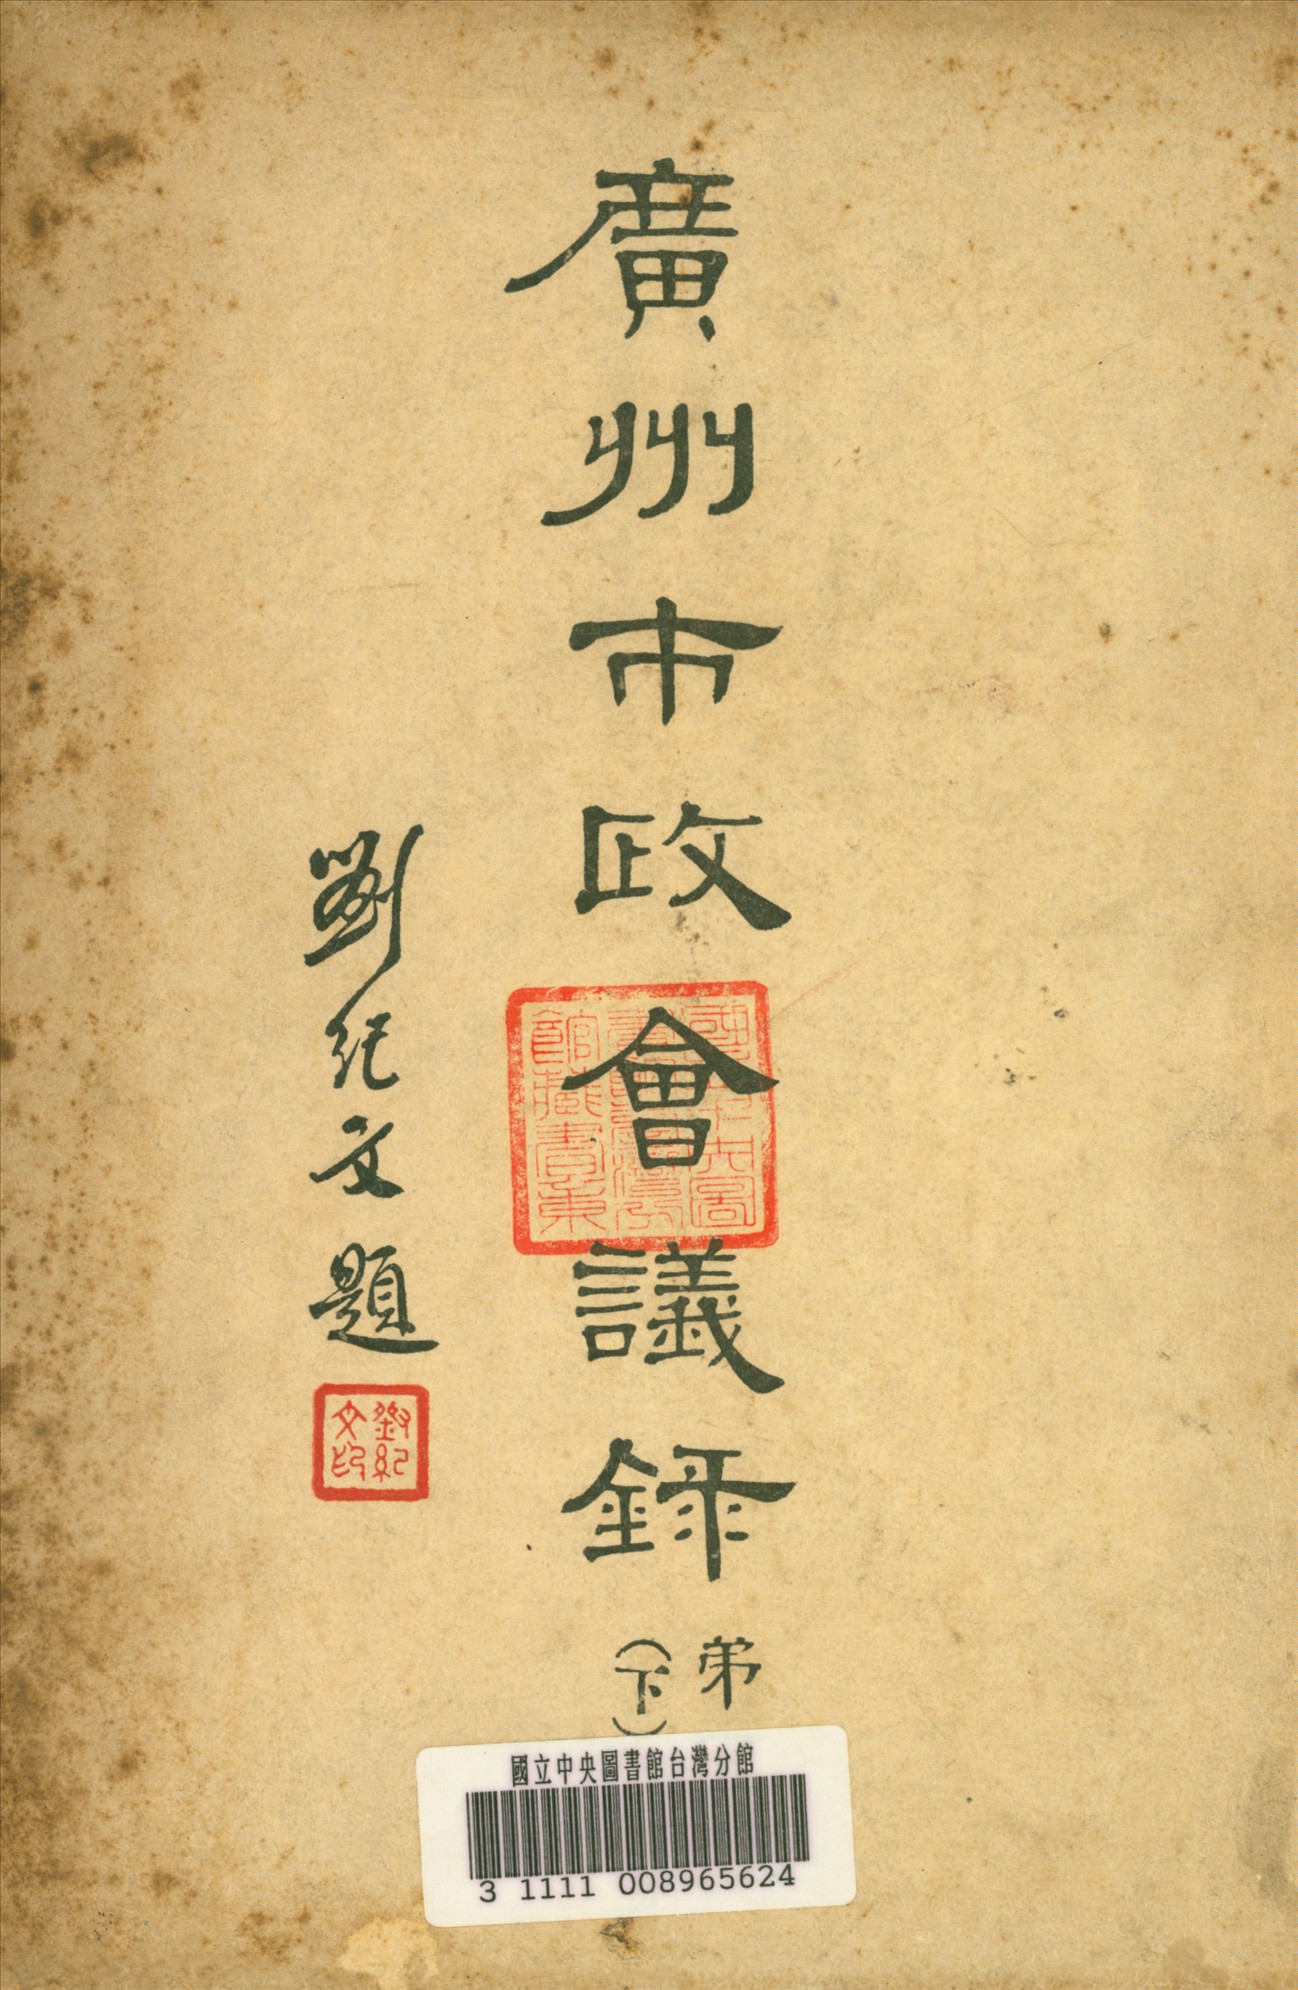 廣州市政會議録
弟
（下）
劉紀文題
劉紀文印
國立中央圖書館臺灣分館藏書章
國立中央圖書館台灣分館
3 1111 008965624